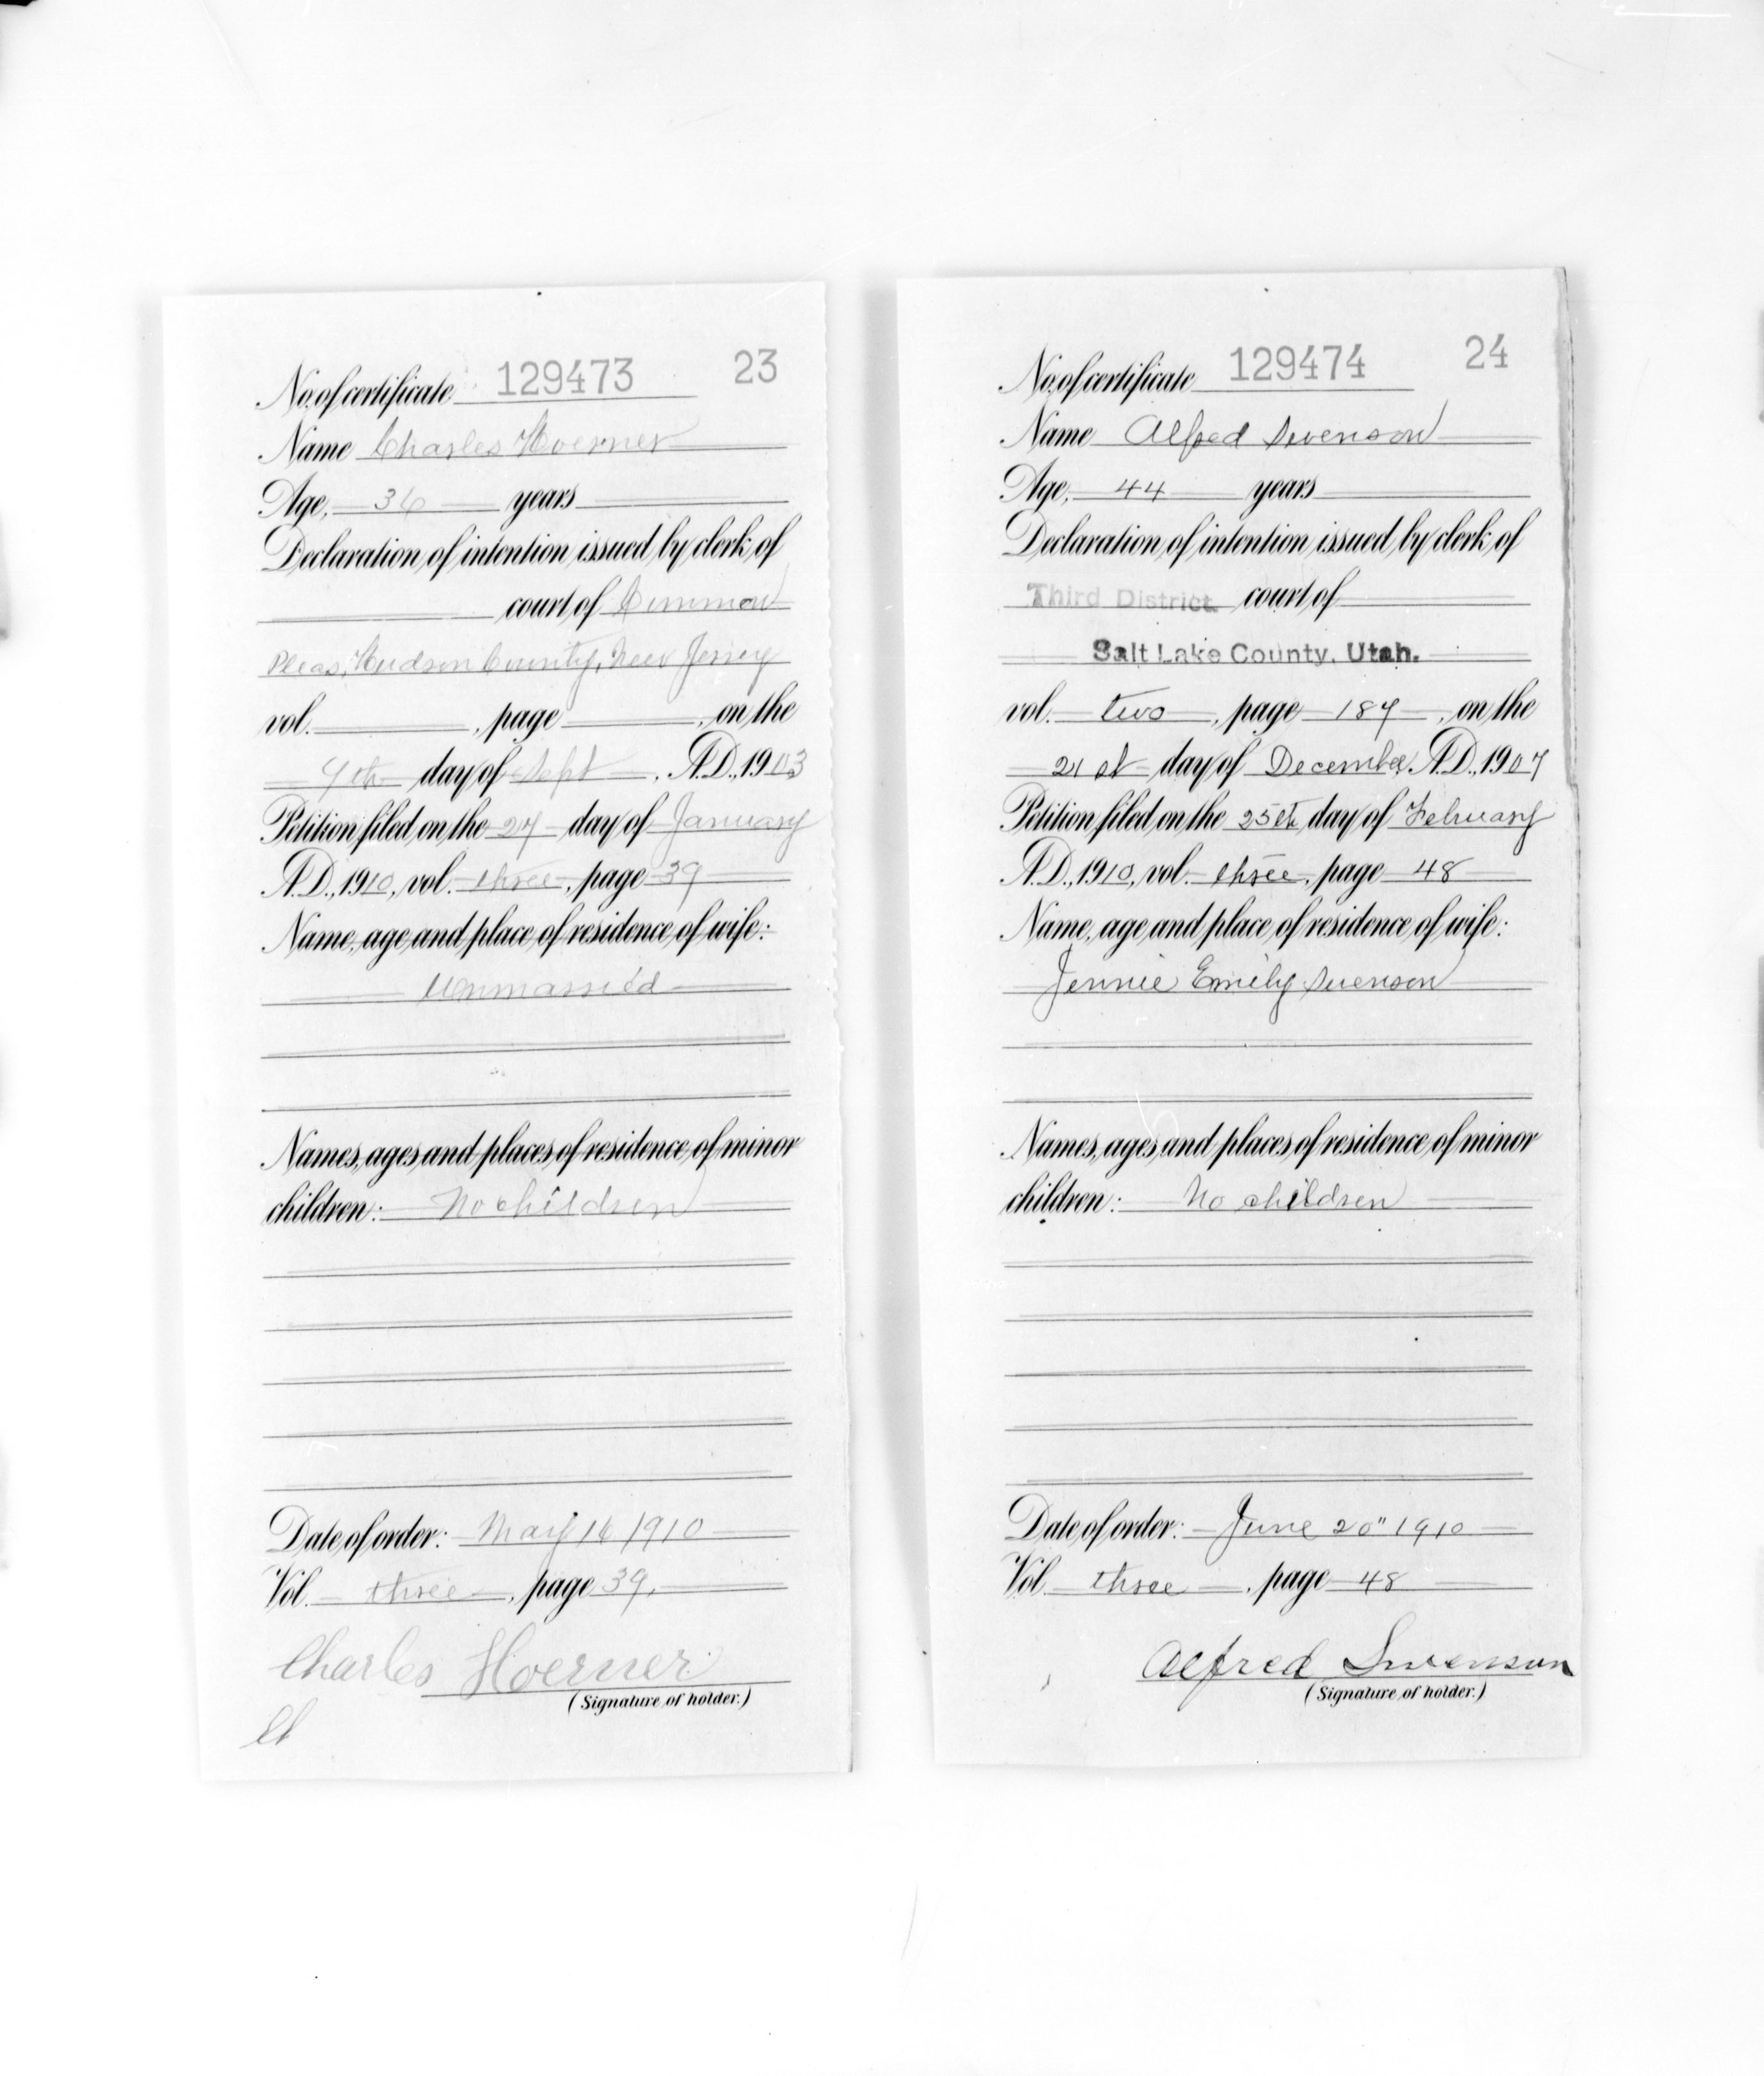 No. of certificate 129473 23
Name Charles Hoerner
Age, 36 years
Declaration of intention issued by clerk of
court of Common
Pleas, Hudson County, New Jersey
vol. , page , on the
7th day of Sept , A.D., 1903
Petition filed on the 27 day of January
A.D., 1910, vol. three, page 39
Name, age and place of residence of wife:
Unmarried
Names, ages and places of residence of minor
children: No children
Date of order: May 16 1910
Vol. three, page 39.
Charles Hoerner
(Signature of holder.)
Ct
No. of certificate 129474 24
Name Alfred Swenson
Age, 44 years
Declaration of intention issued by clerk of
Third District court of
Salt Lake County, Utah.
vol. two, page 187, on the
21st day of December A.D., 1907
Petition filed on the 25th day of February
A.D., 1910, vol. three, page 48
Name, age and place of residence of wife:
Jennie Emily Swenson
Names, ages and places of residence of minor
children: No children
Date of order: June 20" 1910
Vol. three, page 48
Alfred Swenson
(Signature of holder.)